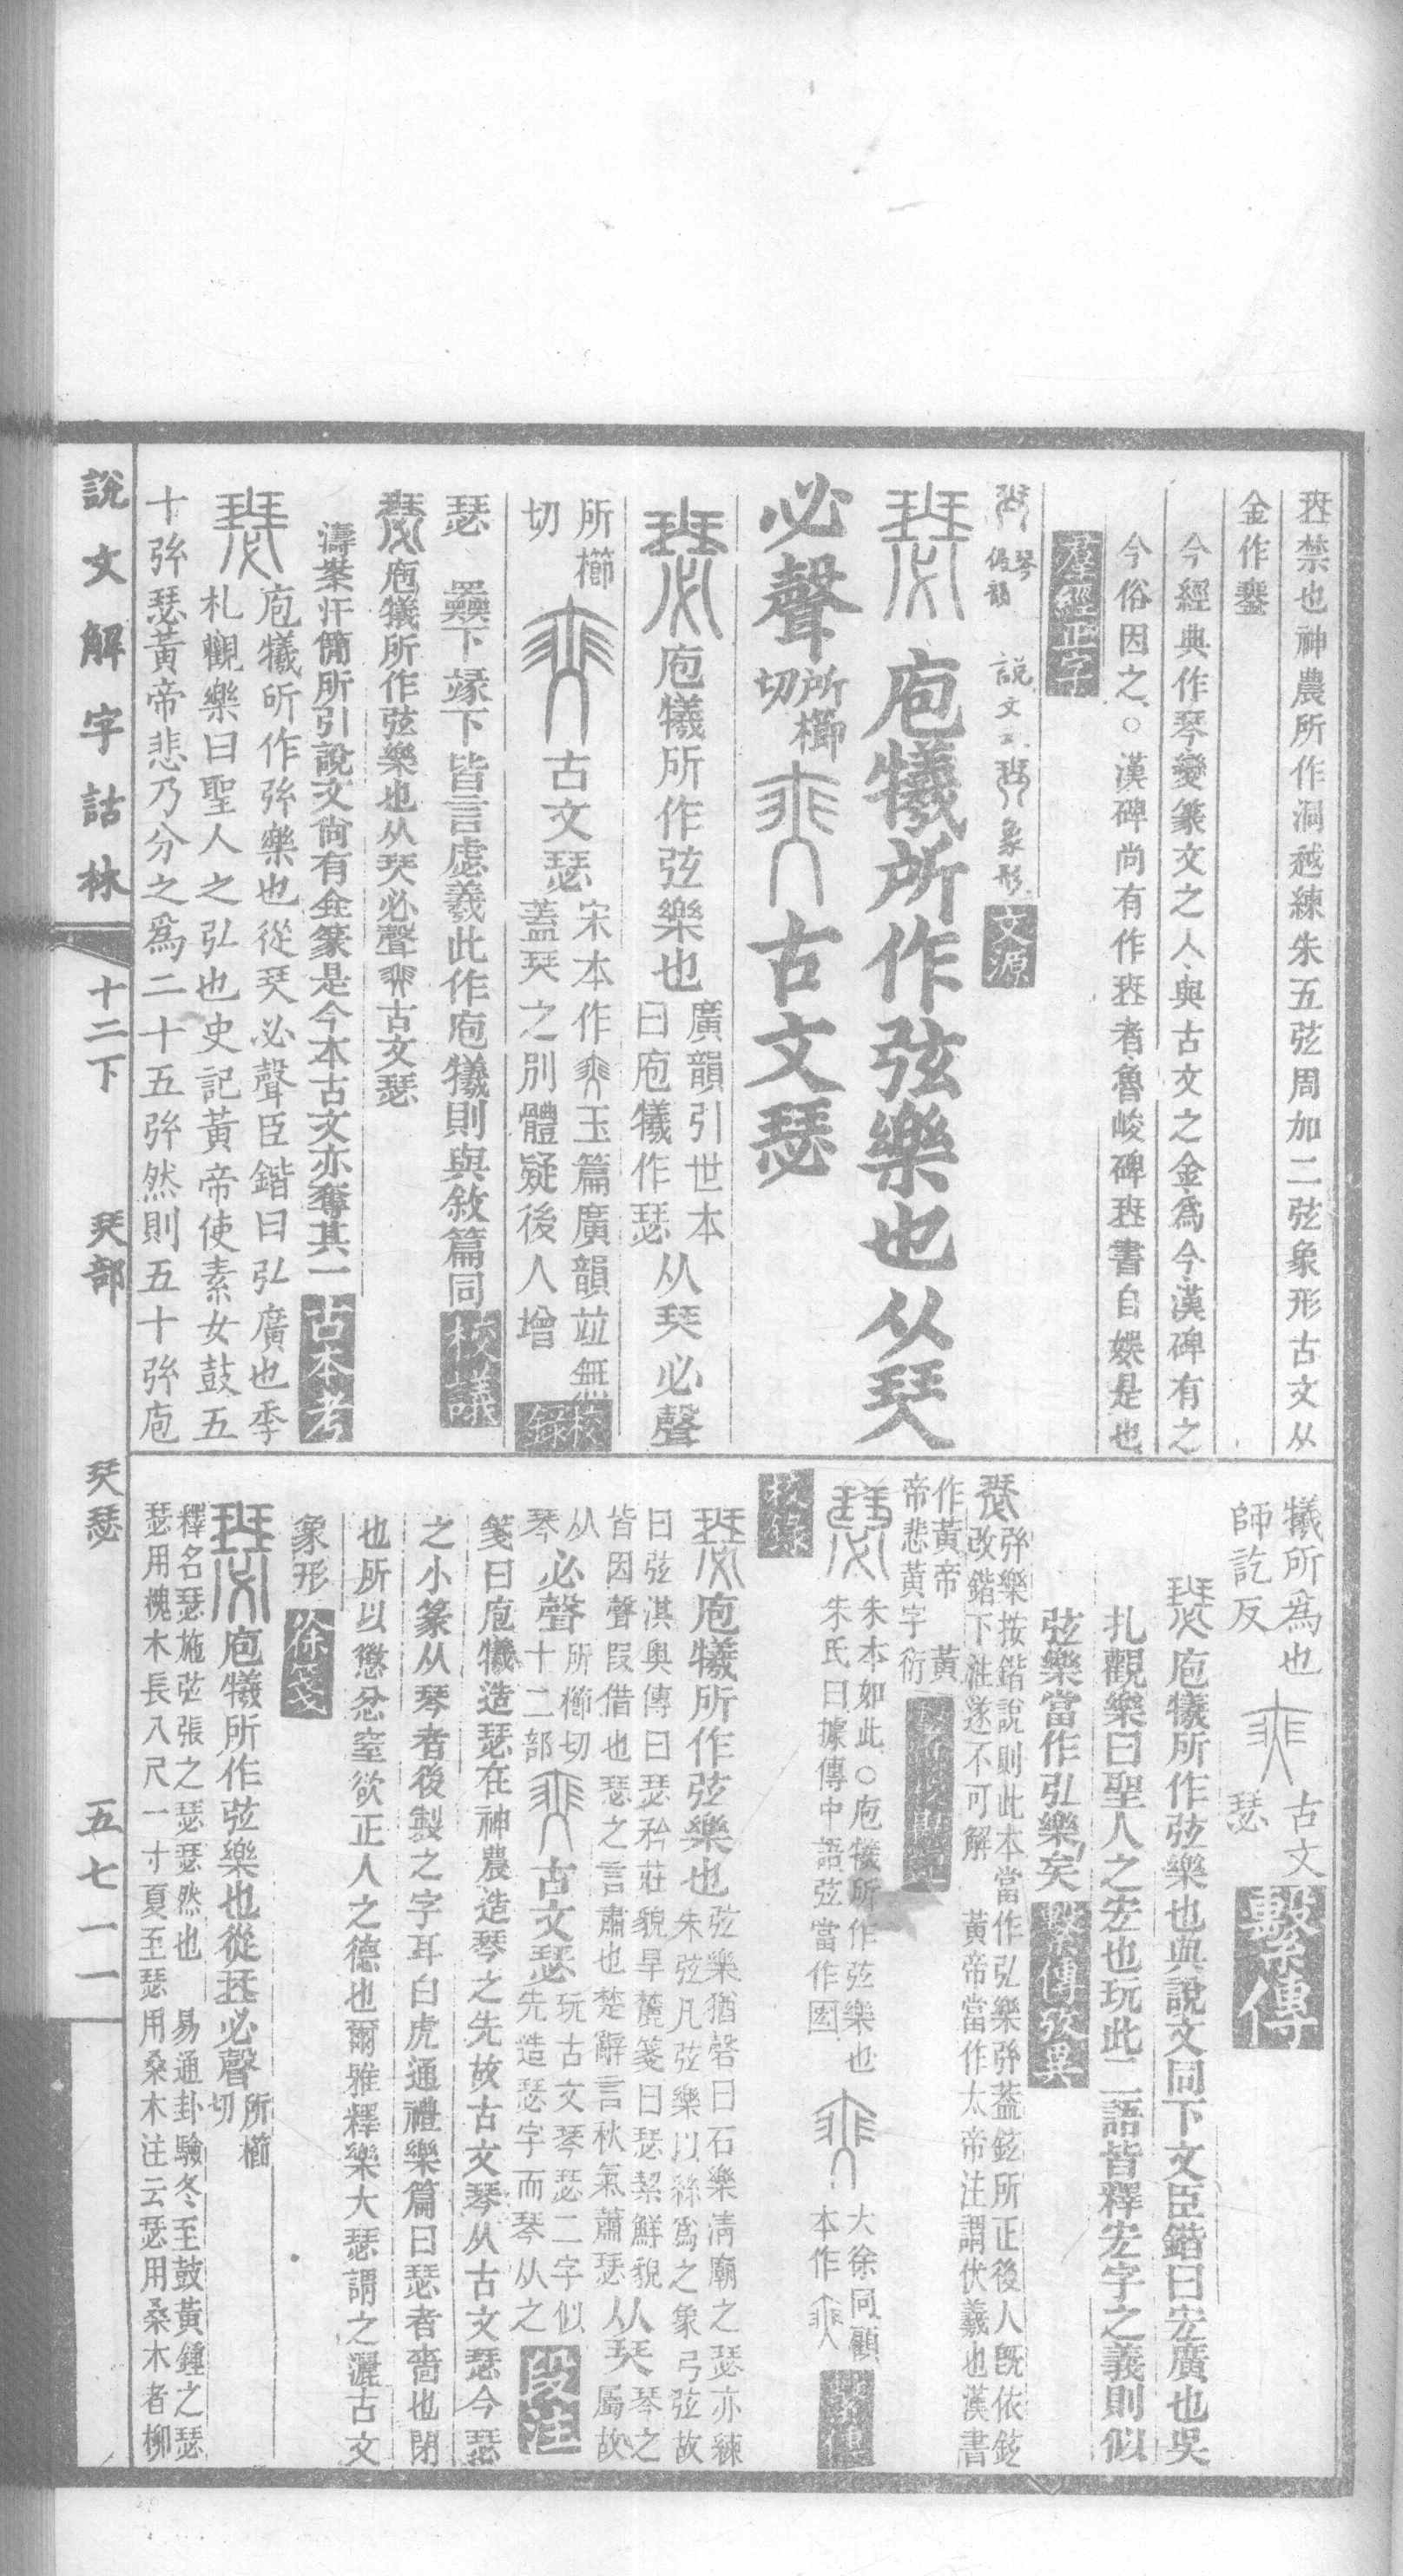 珡禁也神農所作洞越練朱五弦周加二弦象形古文从
金作鑋
今經典作琴變篆文之人與古文之金爲今漢碑有之
今俗因之○漢碑尚有作珡者魯峻碑珡書自娛是也
羣經正字
琴 說文云 象形
文源
庖犧所作弦樂也从珡
必聲所櫛切 古文瑟
庖犧所作弦樂也廣韻引世本曰庖犧作瑟从珡必聲
所櫛切 古文瑟宋本作 玉篇廣韻竝無蓋珡之別體疑後人增
校錄
瑟 下 下皆言虙羲此作庖犧則與敘篇同
校議
庖犧所作弦樂也从珡必聲 古文瑟
濤案汗簡所引說文尚有 篆是今本古文亦奪其一
古本考
庖犧所作弦樂也從珡必聲臣鍇曰弘廣也季
札觀樂曰聖人之弘也史記黃帝使素女鼓五
十弦瑟黃帝悲乃分之爲二十五弦然則五十弦庖
犧所爲也 古文瑟
師訖反
繫傳
庖犧所作弦樂也與說文同下文臣鍇曰宏廣也吳
扎觀樂曰聖人之宏也玩此二語皆釋宏字之義則似
弦樂當作弘樂矣
繫傳攷異
弦樂按鍇說則此本當作弘樂 蓋 所正後人旣依
改鍇下注遂不可解 黃帝當作太帝注謂伏羲也漢書
作黃帝 黃
帝悲黃字衍
朱本如此○庖犧所作弦樂也
朱氏曰據傳中語弦當作
大徐同顧
本作
庖犧所作弦樂也弦樂猶磬曰石樂清廟之瑟亦練
朱弦凡弦樂以絲爲之象弓弦故
曰弦淇奧傳曰瑟矜莊貌旱麓箋曰瑟絜鮮貌
皆因聲叚借也瑟之言肅也楚辭言秋氣蕭瑟从珡琴之屬故
从琴必聲所櫛切十二部 古文瑟玩古文琴瑟二字似先造瑟字而琴从之
段注
箋曰庖犧造瑟在神農造琴之先故古文琴从古文瑟今瑟
之小篆从琴者後製之字耳白虎通禮樂篇曰瑟者嗇也閉
也所以懲忿窒欲正人之德也爾雅釋樂大瑟謂之灑古文
象形
徐箋
庖犧所作弦樂也從珡必聲所櫛切
釋名瑟施弦張之瑟瑟然也 易通卦驗冬至鼓黃鍾之瑟
瑟用槐木長八尺一寸夏至瑟用桑木注云瑟用桑木者柳
說文解字詁林
十二下
珡部
珡瑟
五七一一